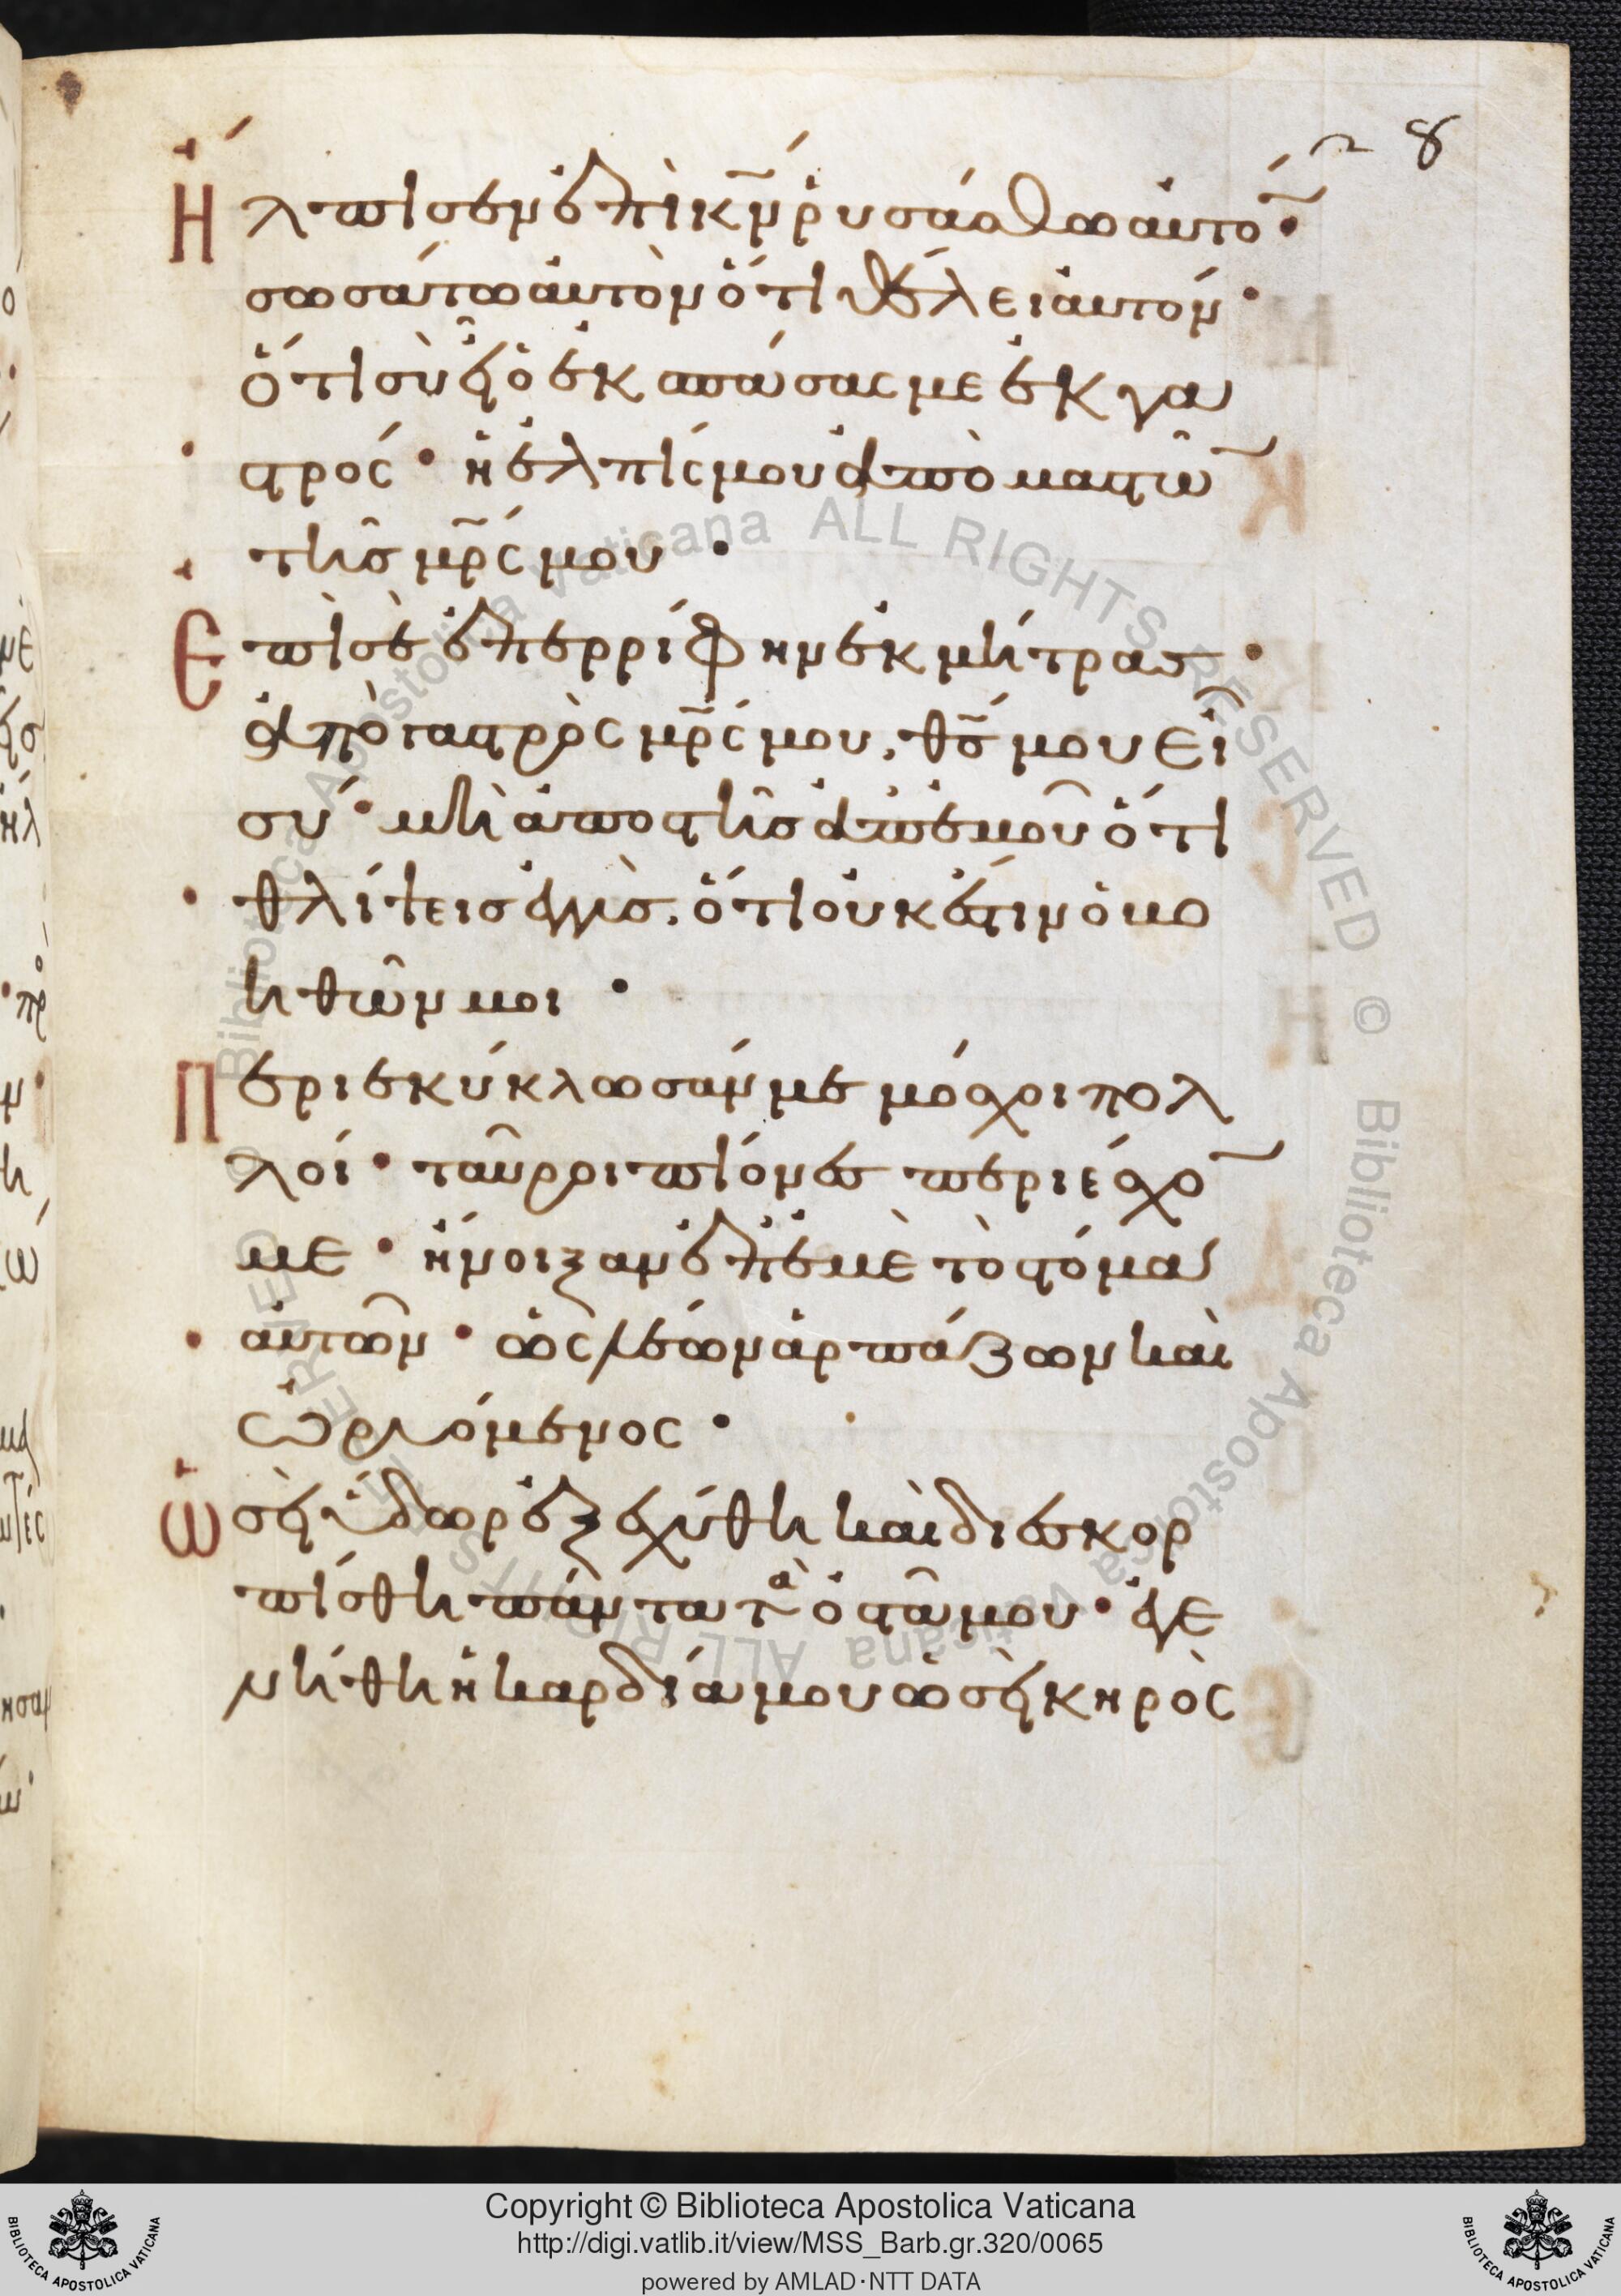 8
Ἤλπισεν ἐπὶ κν̄ ῥυσάσθω αὐτό·
σωσάτω αὐτὸν ὅτι θέλει αὐτόν·
ὅτι σὺ εἶ ὁ ἐκσπάσας με ἐκ γα
στρός· ἡ ἐλπίς μου ἀπὸ μαστῶ
τῆς μρ̄ς μου·
Ἐπὶ σὲ ἐπερρίφην ἐκ μήτρας·
ἀπὸ γαστρὸς μρ̄ς μου, θς̄ μου εἶ
σύ· μὴ ἀποστῆς ἀπ' ἐμοῦ ὅτι
θλίψεις ἐγγὺς. ὅτι οὐκ ἔστιν ὁ βο
ηθῶν μοι·
Περιεκύκλωσάν με μόσχοι πολ
λοί· ταῦροι πίονες περιέσχο
με· ἤνοιξαν ἐπ' ἐμὲ τὸ στόμα
αὐτῶν· ὡς λέων ἁρπάζων καὶ
ὠρυόμενος·
Ὡσεὶ ὕδωρ ἐξεχύθη καὶ διεσκορ
πίσθη πάντα τὰ ὀστᾶ μου· ἐγε
νήθη ἡ καρδία μου ὡσεὶ κηρὸς
Biblioteca Apostolica Vaticana ALL RIGHTS RESERVED ©
Copyright © Biblioteca Apostolica Vaticana
http://digi.vatlib.it/view/MSS_Barb.gr.320/0065
powered by AMLAD·NTT DATA
BIBLIOTECA APOSTOLICA VATICANA
BIBLIOTECA APOSTOLICA VATICANA